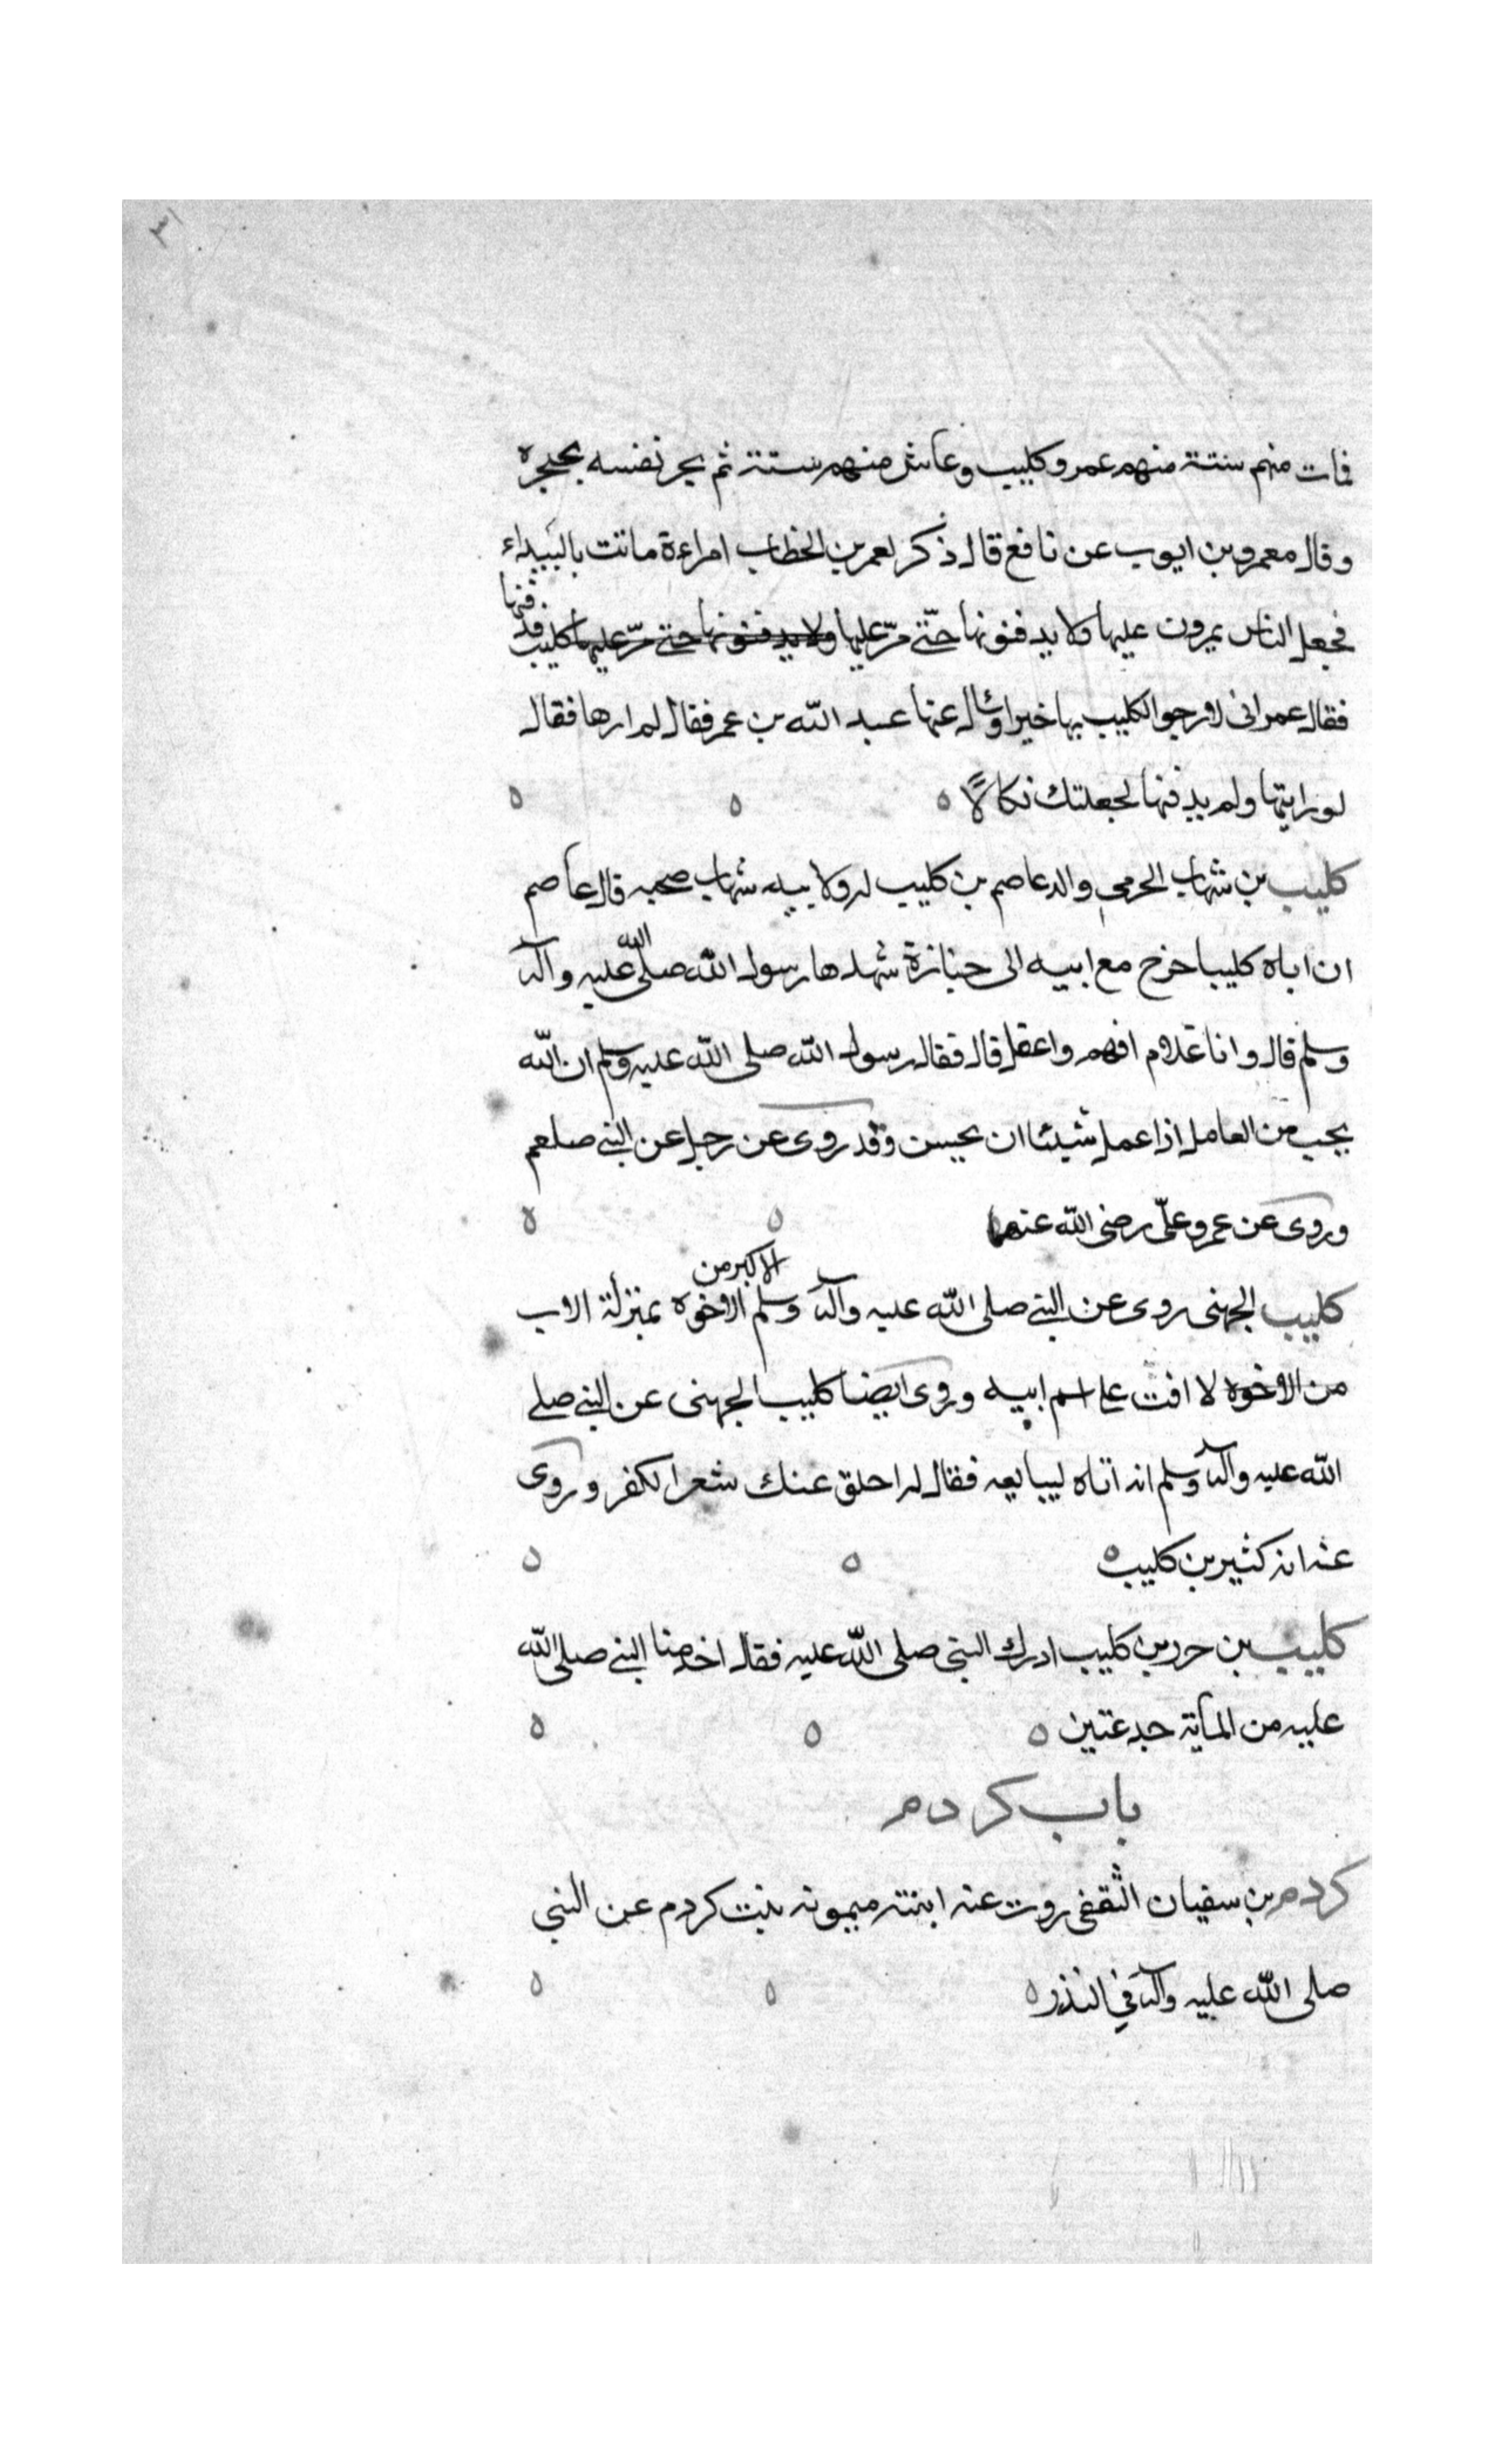 ٣١
فمات منهم ستة منهم عمر وكليب وعاش منهم ستة ثم نحر نفسه بخنجره
وقال معمر وبن ايوب عن نافع قال ذكر لعمر بن الخطاب امراءة ماتت بالبيداء
فجعل الناس يمرون عليها ولا يدفنونها حتّى مرّ عليها ولا يدفنونها حتى مرّ عليها كليب فدفنها
فقال عمر انى لارجوا لكليب بها خيرا وسال عنها عبد الله بن عمر فقال لم ارها فقال
لو رايتها ولم يدفنها لجعلتك نكالًا ٥ ٥ ٥
كليب بن شهاب الجرمي والد عاصم بن كليب له ولابيه شهاب صحبه قال عاصم
ان اباه كليبا خرج مع ابيه الى جنازة شهدها رسول الله صلى الله عليه وآله
وسلم قال وانا غلام افهم واعقل قال فقال رسول الله صلى الله عليه وسلم ان الله
يحب من العامل اذا عمل شيئا ان يحسن وقد روى عن رجل عن النبي صلعم
وروى عن عمر وعلّى رضى الله عنهما ٥ ٥
كليب الجهنى روى عن النبي صلى الله عليه وآله وسلم الاكبر من الاخوه بمنزلة الاب
من الاخوه لا اقف على اسم ابيه وروى ايضا كليب الجهنى عن النبي صلى
الله عليه وآله وسلم انه اتاه ليبايعه فقال له احلق عنك شعر الكفر وروى
عنه انه كثير بن كليب ٥ ٥ ٥
كليب بن حرر بن كليب ادرك النبى صلى الله عليه فقال اخذ منا النبي صلى الله
عليه من المأية جدعتين ٥ ٥ ٥
باب كردم
كردم بن سفيان الثقفى روت عنه ابنته ميمونه بنت كردم عن النبي
صلى الله عليه وآله في النذر ٥ ٥ ٥